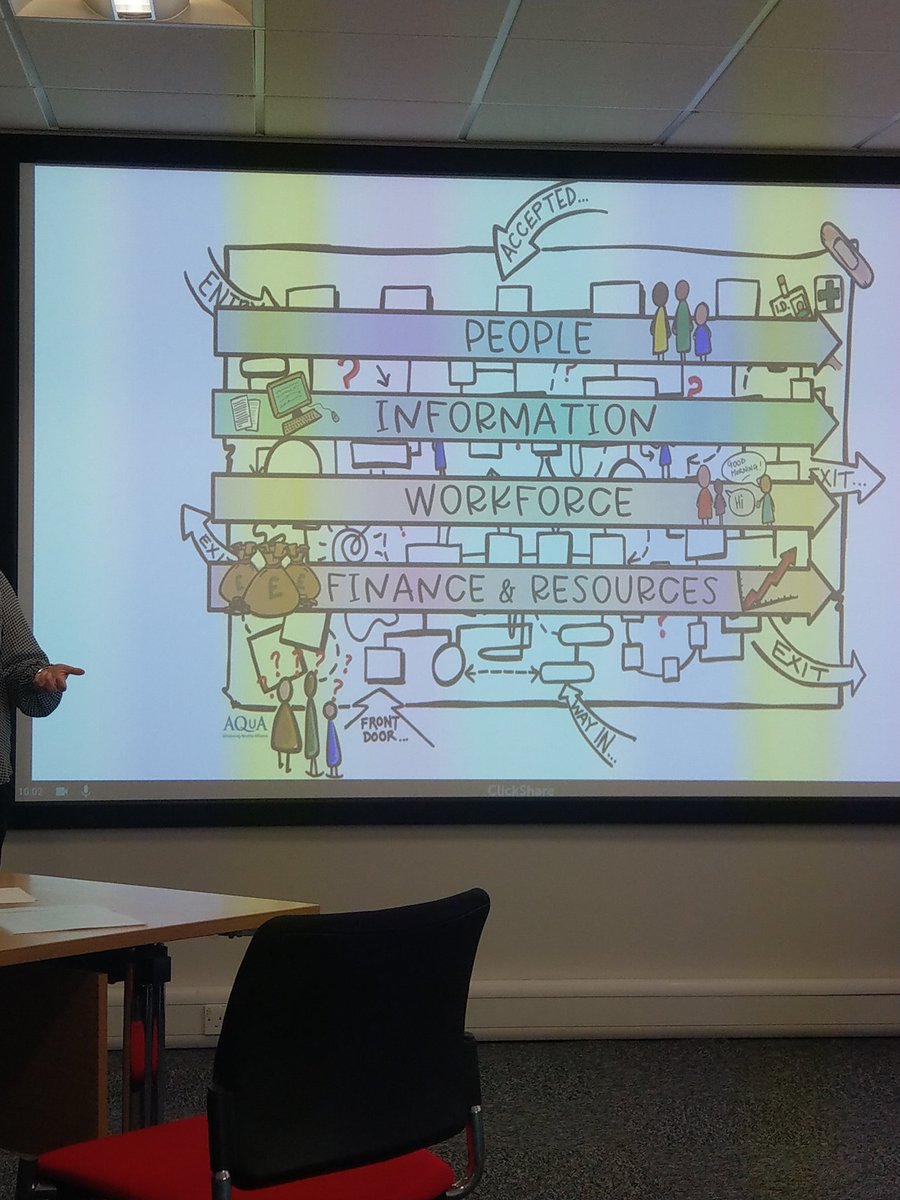 ACCEPTED...
ENTRY
PEOPLE
?
?
?
INFORMATION
GOOD
MORNING!
Hi
WORKFORCE
EXIT...
EXIT
£ £ £
FINANCE & RESOURCES
?
? ? ?
?
EXIT
AQuA
FRONT
DOOR...
WAY IN...
10:02
ClickShare